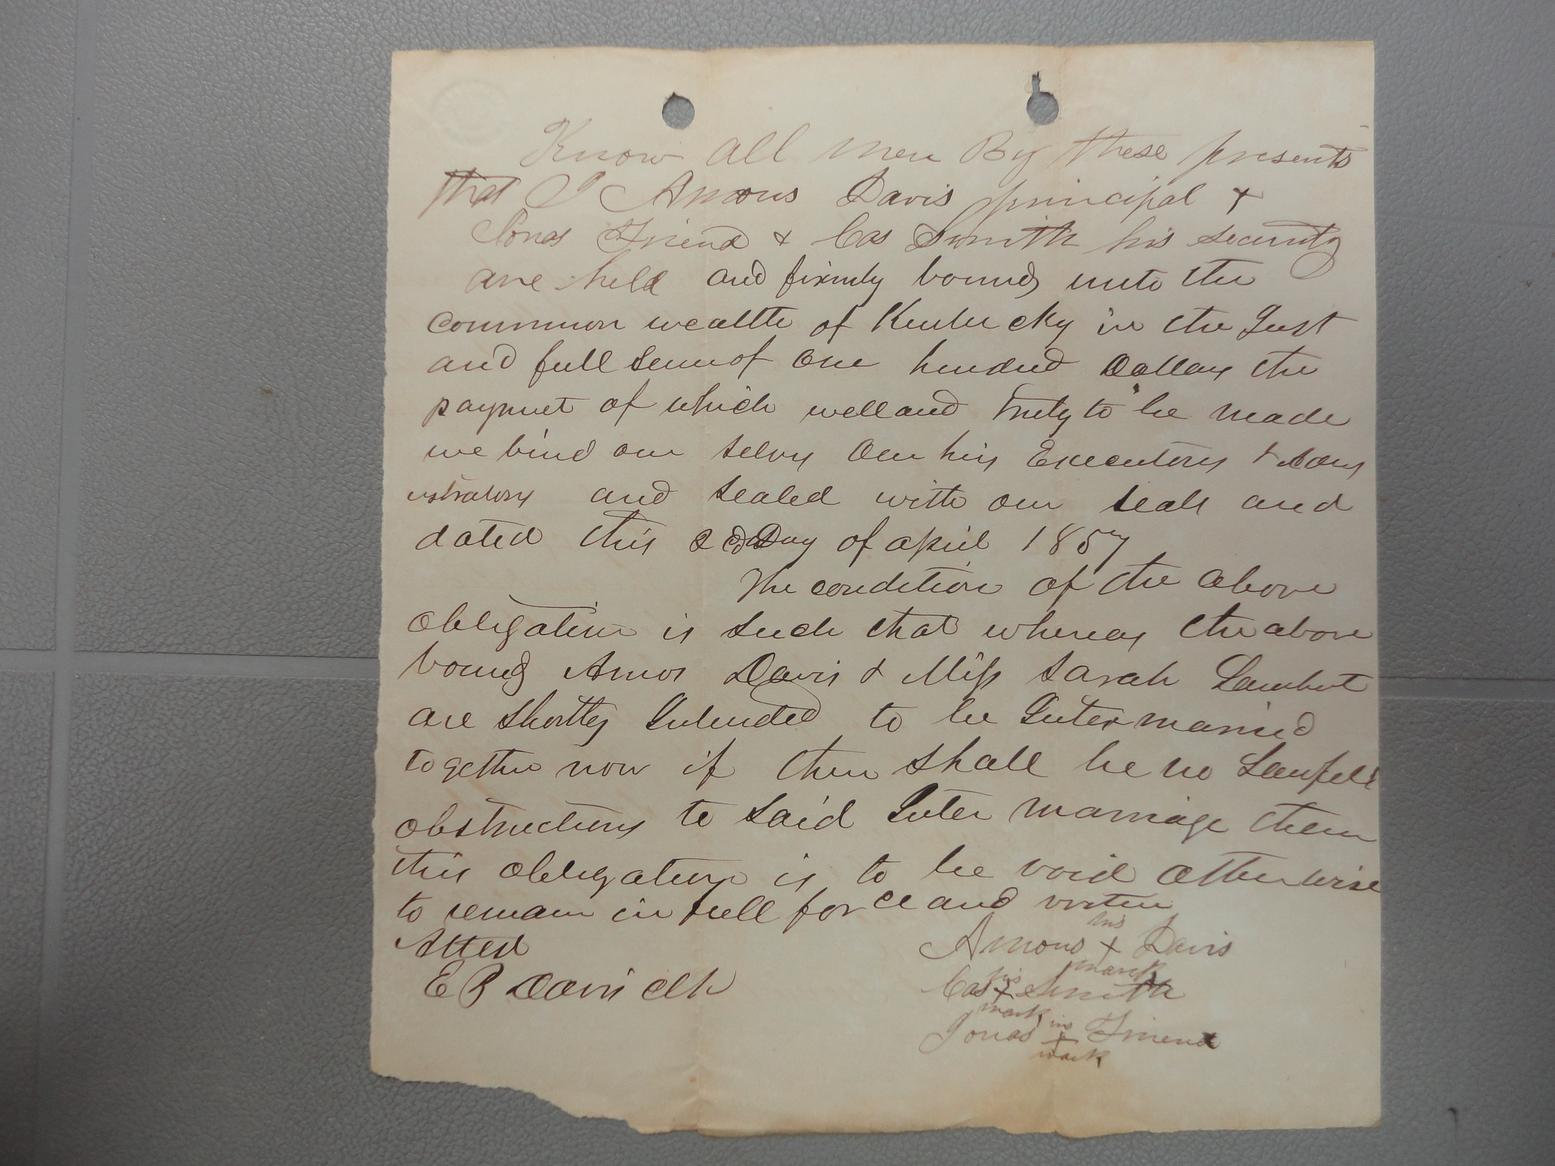 Know all men By these presents
that I Amous Davis principal &
Jonas Friend & Cas Smith his security
are held and firmly bound unto the
common wealth of Kentucky in the Just
and full Sum of One hundred Dollars the
payment of which well and truly to be made
we bind our selvs Our hirs Executors & Admi
nistrators and sealed with our seals and
dated this Day of april 1857
The condition of the above
obligation is such that whereas the above
bound Amos Davis & Miss Sarah Lambert
are Shortly Intended to be Inter married
together now if there shall be no Lawfull
obstructions to said Inter marriage then
this obligation is to be void otherwise
to remain in full force and virtue
Attest
E P Davis Clk
Amous his X mark Davis
Cas his X mark Smith
Jonas his X mark Friend